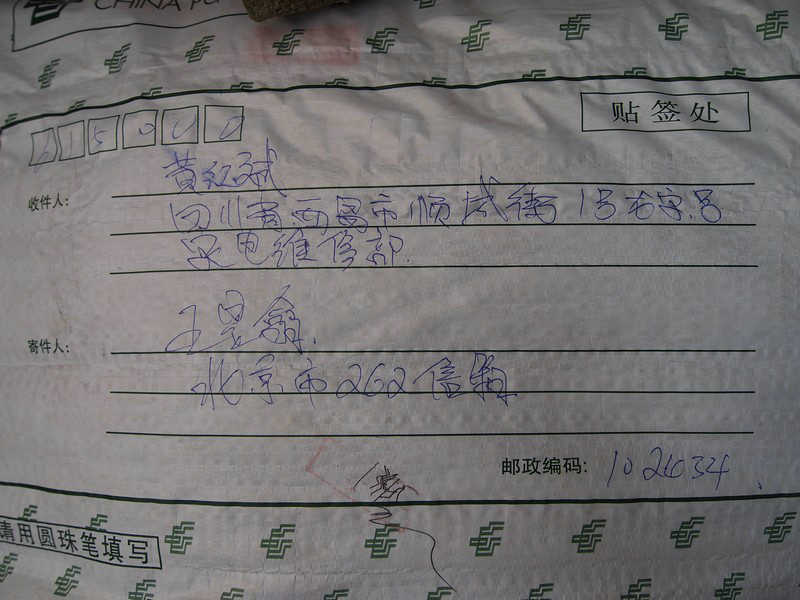 CHINA PO
贴签处
615000
收件人:
黄红斌
四川省西昌市顺城街1号右字号
家电维修部.
寄件人:
王
北京市262信箱
邮政编码: 102434
请用圆珠笔填写